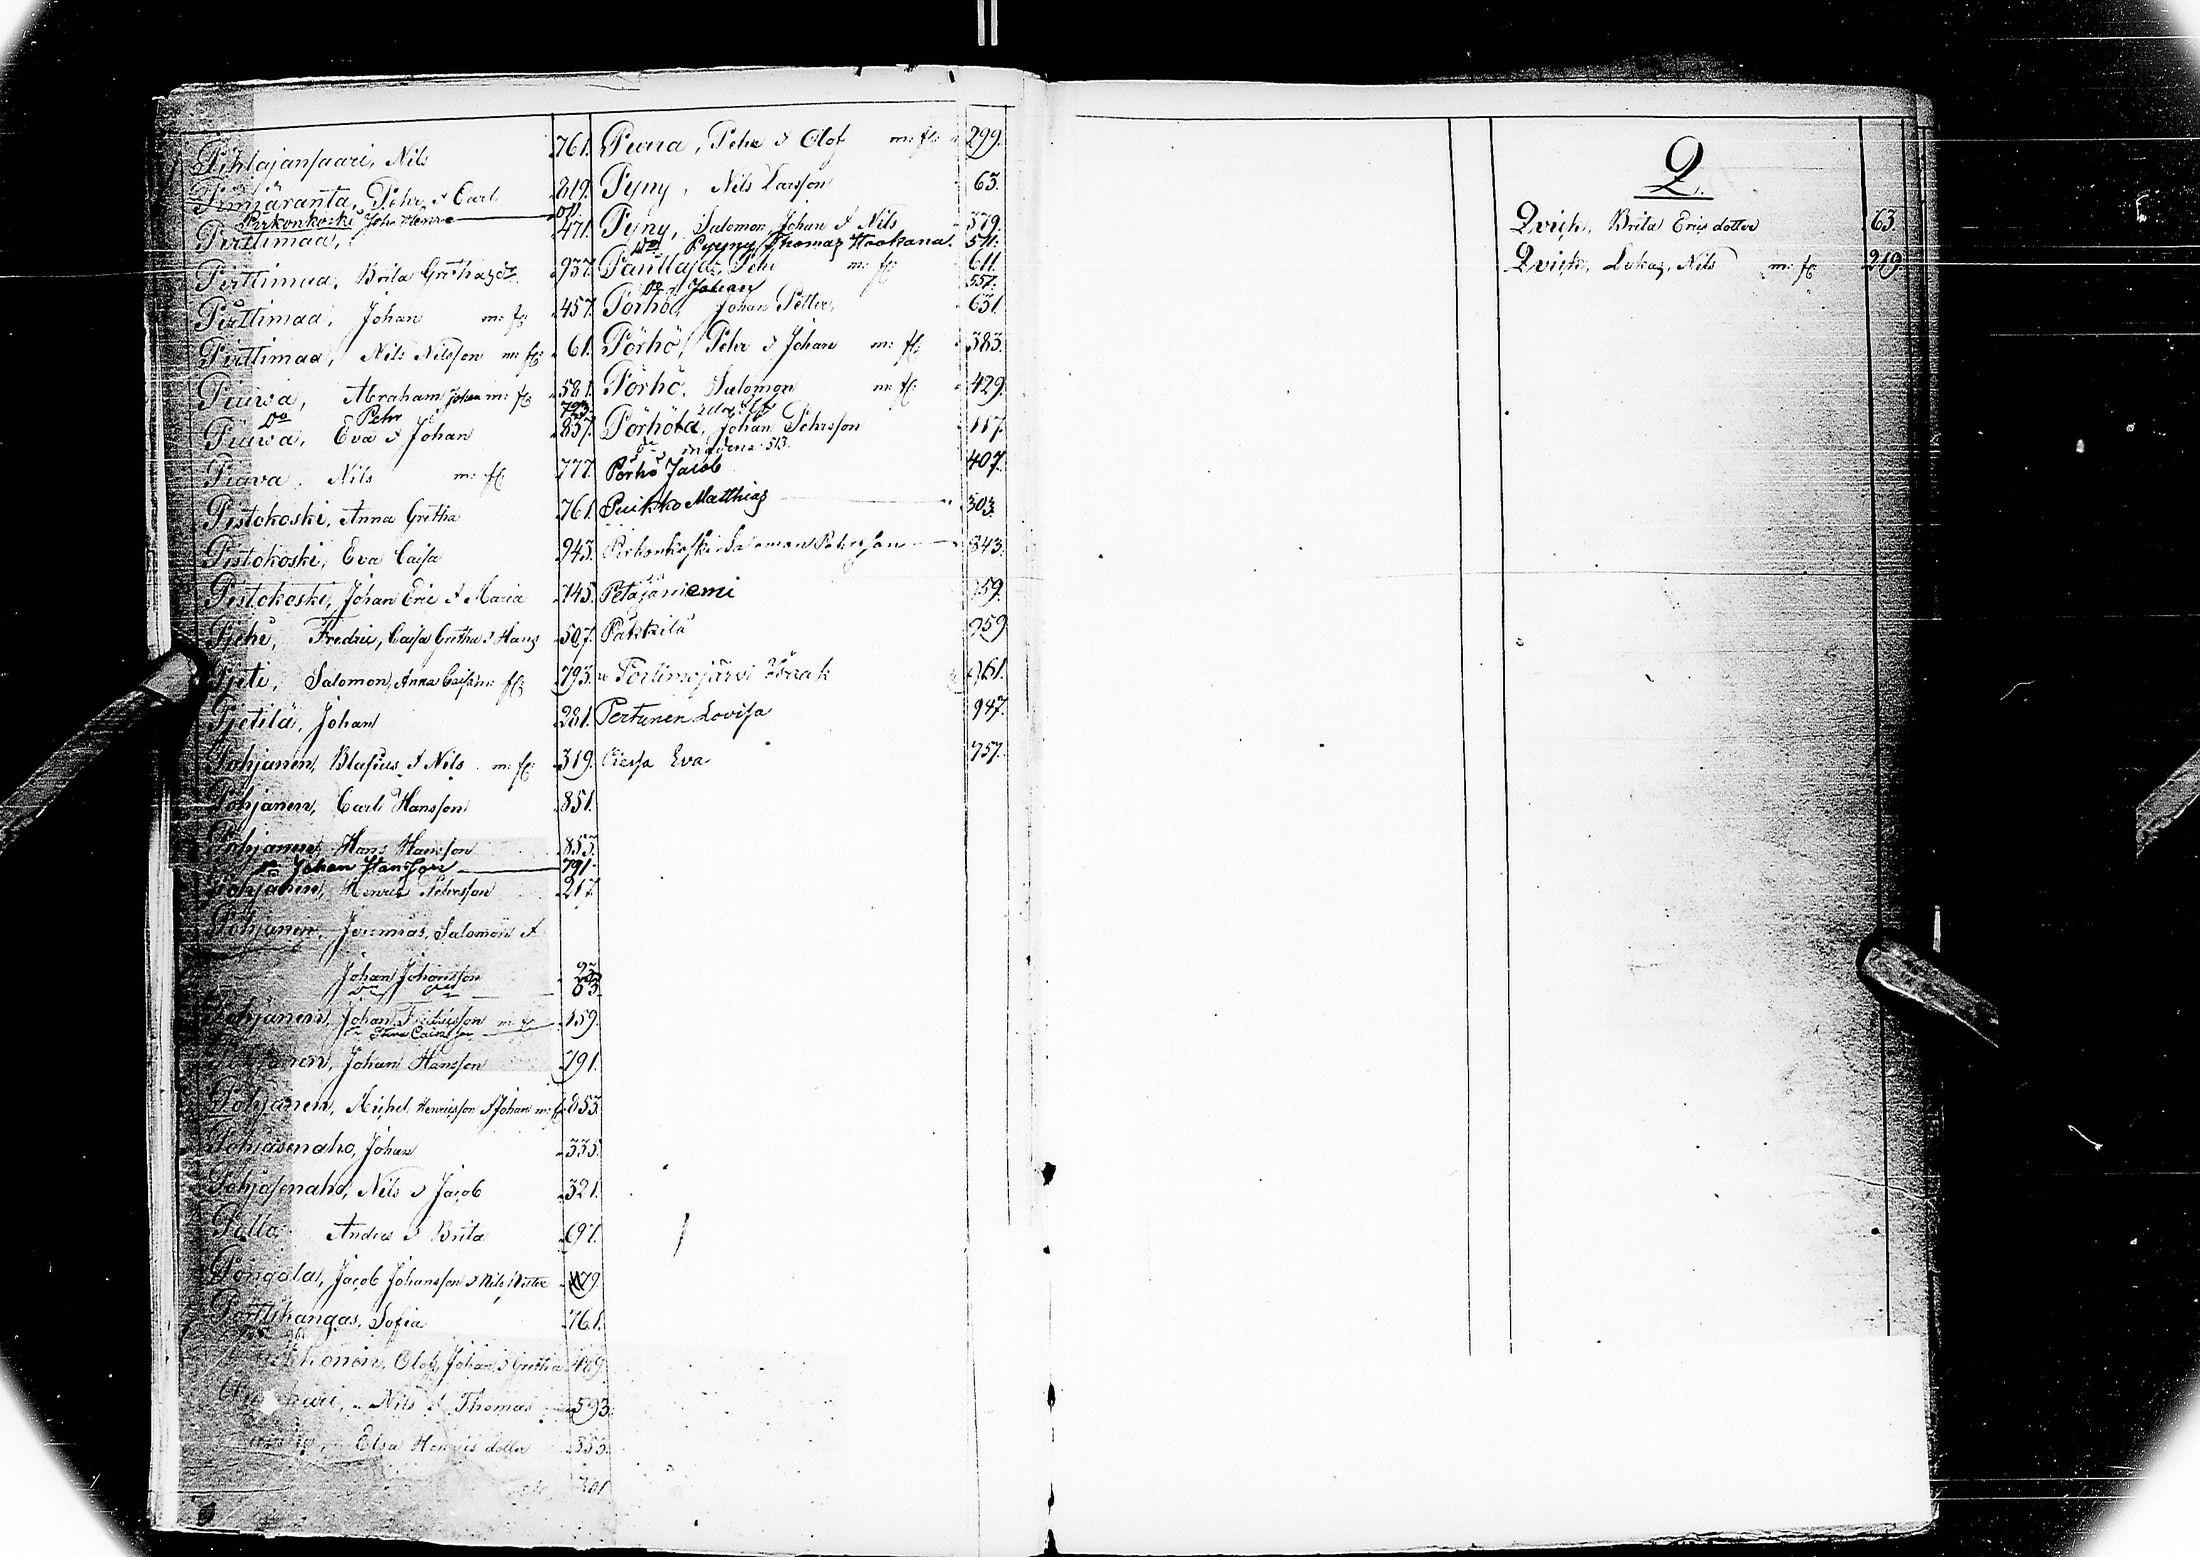 Pihlajansaari, Nils 761.
Pinnjäranta, Pehr & Carl 819.
Pirkonkoski Joh: Henr:
Pirttimaa, 471.
Pirttimaa, Brita Grethasdr 937.
Pirttimaa, Johan m: fl: 457.
Pirttimaa, Nils Nilsson m: fl: 61.
Piuva, Abraham Johan m: fl: 581.
Do Pehr 723.
Piuva, Eva & Johan 857.
Piuva, Nils m: fl: 777.
Pistokoski, Anna Gretha 761.
Pistokoski, Eva Caisa 943.
Pistokoski, Johan Eric & Maria 745.
Pjehi, Fredric, Caisa Gretha & Hans 507.
Pjeti, Salomon, Anna Caisa m: fl: 793.
Pjetilä, Johan 281.
Pohjanen, Blasius & Nils m: fl: 319.
Pohjanen, Carl Hansson 851.
Pohjanen, Hans Hansson 853.
Do Johan Hansson 791.
Pohjanen, Henric Pehrsson 217.
Pohjanen, Jeremias, Salomon &
Johan Johansson
Pohjanen, Johan Fredricsson m: fl: 159.
Pohjanen, Johan Hansson 791.
Pohjanen, Michel Henricsson & Johan m: fl: 853.
Pohjasenaho, Johan 335.
Pohjasenaho, Nils & Jacob 321.
Pollo, Anders & Brita 691.
Pongala, Jacob Johansson & Nils Petter 79.
Porttikangas, Sofia 761.
Olof, Johan & Gretha 489.
Nils & Thomas 593.
Elsa Henricsdotter 353.
301
Puura, Pehr & Olof m: fl: 299.
Pyny, Nils Larsson 63.
Pyny, Salomon, Johan & Nils 379.
Do Pyyny Thomas Hookana. 571.
Pänttäjä, Pehr m: fl: 611.
Do Johan 557.
Pörhö, Johan Petter, 631
Pörhö, Pehr & Johan m: fl: 383.
Pörhö, Salomon m: fl: 429.
Pörhölä, Johan Pehrsson 117.
513.
Pörhö Jacob 407.
Puikko Matthias 303.
Pirkonkoski Salomon Pehrsson 843.
Petäjäniemi 959.
Pakkila 959
Portimojärvi Isaak 961.
Pertunen Lovisa 947.
Piessa Eva 757.
Q.
Qvick, Brita Ericsdotter 63.
Qvick, Lukas, Nils m: fl: 219.